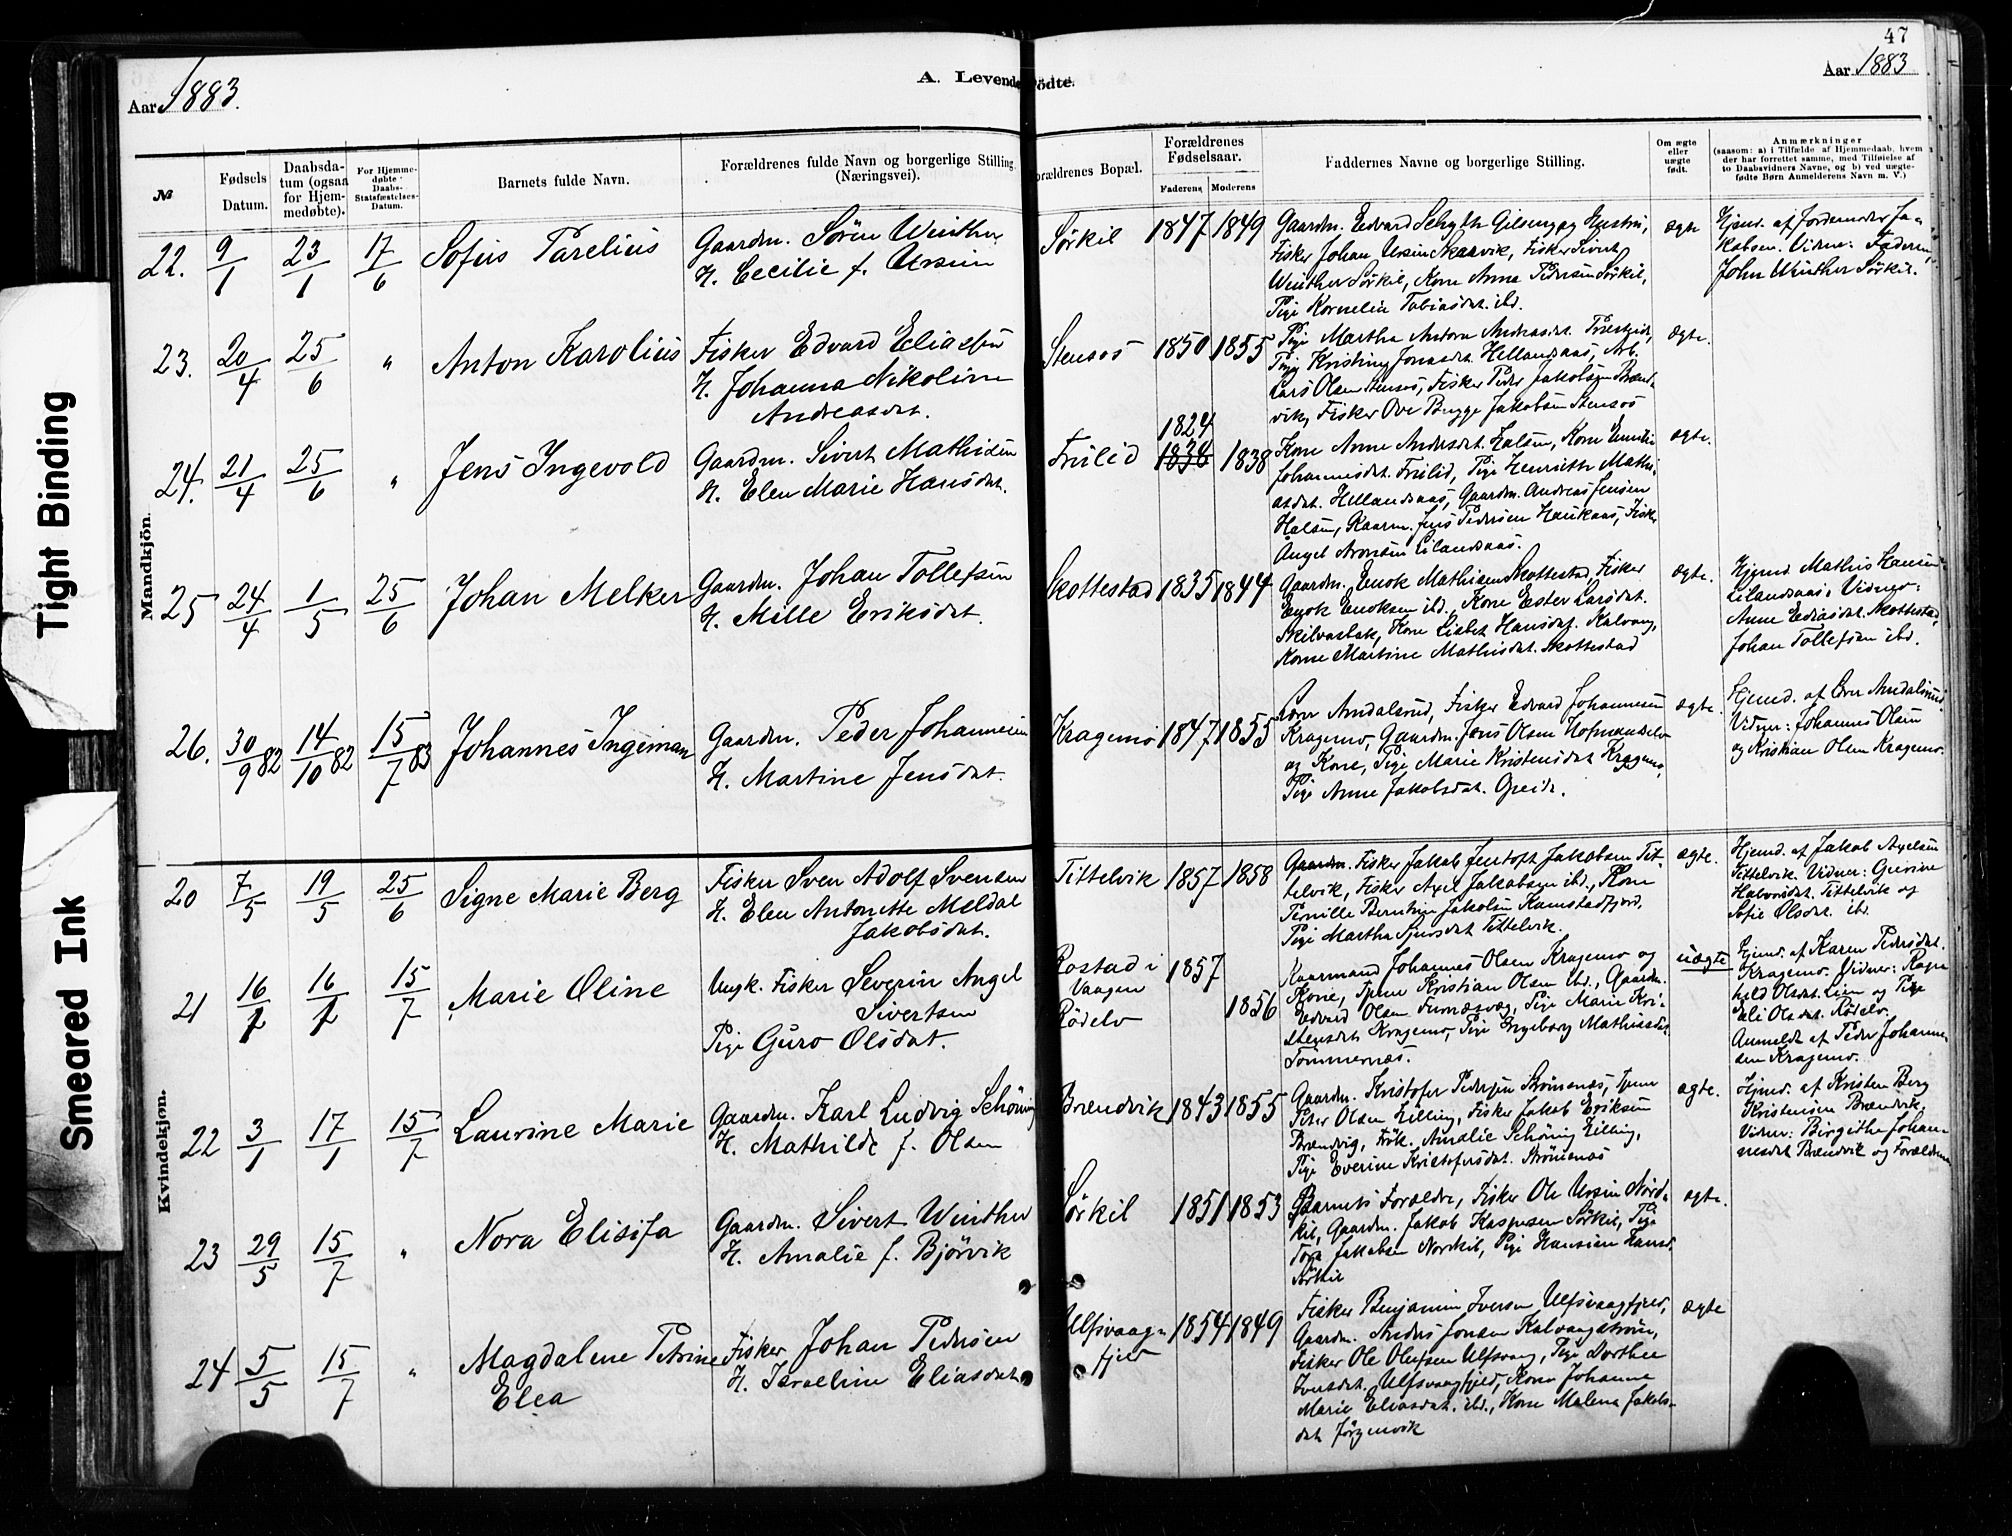 47
Aar 1883.
A. Levende Födte.
Aar 1883
№
Fødsels Datum.
Daabsdatum (ogsaa for Hjemmedøbte).
For Hjemmedøbte Daabs-Statsfæstelses-Datum.
Barnets fulde Navn.
Forældrenes fulde Navn og borgerlige Stilling (Næringsvei).
Forældrenes Bopæl.
Forældrenes Fødselsaar.
Faderens
Moderens
Faddernes Navne og borgerlige Stilling.
Om ægte eller uægte födt.
Anmærkninger
(saasom: a) i Tilfælde af Hjemmedaab, hvem
der har forrettet samme, med Tilføielse af
to Daabsvidners Navne, og b) ved uægte-
fødte Børn Anmelderens Navn m. V.)
Tight Binding
Smeared Ink
Mandkjön.
22. 9/1 23/1 17/6 Sofus Parelius
Gaardm. Sören Winther
H. Cecilie f. Ursin
Sörkil 1847 1849
Gaardm. Edvard Schytte Gilsen og Hustru,
Fisker Johan Ursin Skarvik, Fisker Sivert
Winther Sörkil, Kone Anna Pedersen Sörkil,
Pige Kornelia Tobiasdat. ibd.
ægte
Hjmd. af Jordemoder Ja-
kobsen. Vidner: Faderen,
John Winther Sörkil.
23. 20/4 25/6 " Anton Karolius
Fisker Edvard Eliassen
H. Johanna Nikoline
Andreasdat.
Stensos 1850 1855
Pige Martha Antona Andreasdat.
Pige Kristine Jonasdat. Hellandsaas, Arb.
Lars Olsen Stensos, Fisker Peder Jakobsen Brænd-
vik, Fisker Ove Bugge Jakobsen Stensos
ægte.
24. 21/4 25/6 " Jens Ingevold
Gaardm. Sivert Mathisen
H. Elen Marie Hansdat.
Frilid 1824 1836 1838
Kone Anne Andersdat. Halsen, Kone Emilie
Johannesdat. Frilid, Pige Henritte Mathi-
asdat. Hellandsaas, Gaardm. Andreas Jensen
Halsen, Kaarm. Jens Pedersen Haukaas, Fisker
Angel Aronsen Lilandsaas.
ægte.
25 24/4 1/5 25/6 Johan Melker
Gaardm. Johan Tollefsen
H. Mille Eriksdat.
Skottestad 1835 1844
Gaardm. Enok Mathisen Skottestad, Fisker
Enok Enoksen ibd., Kone Ester Larsdat.
Skilvasbak, Kone Lisbet Hansdat. Kalvaag,
Kone Martine Mathisdat. Skottestad
ægte.
Hjmd Mathis Hansen
Lilandsaas. Vidner:
Anne Ediasdat. Skottestad,
Johan Tollefsen ibd.
26. 30/9 82 14/10 82 15/7 83 Johannes Ingeman
Gaardm. Peder Johannesen
H. Martine Jensdat.
Kragemo 1847 1855
Lærer Arndalsrud, Fisker Edvard Johannesen
Kragemo, Gaardm. Jens Olsen Hofmanselv
og Kone, Pige Marie Kristensdat Kragemo,
Pige Anne Jakobsdat. Greide.
ægte.
Hjemd. af Lærer Arndalsrud.
Vidner: Johannes Olsen
og Kristian Olsen Kragemo.
Kvindekjön.
20 7/5 19/5 25/6 Signe Marie Berg
Fisker Sven Adolf Svensen
H. Elen Antonette Meldal
Jakobsdat.
Tittelvik 1857 1858
Gaardm. Fisker Jakob Jentoft Jakobsen Tit-
telvik, Fisker Axel Jakobsen ibd., Kone
Pernille Berntine Jakobsen Kanstadfjord,
Pige Martha Sjursdat Tittelvik.
ægte.
Hjemd. af Jakob Axelsen
Tittelvik. Vidner: Gurine
Halvorsdat. Tittelvik og
Sofie Olsdat. ibd.
21 16/2 16/2 15/7 Marie Oline
Ungk. Fisker Severin Angel
Sivertsen
Pige Guro Olsdat.
Rostad i
Vaagen
Rödelv
1857 1856
Kaarmand Johannes Olsen Kragemo og
Kone, Tjener Kristian Olsen ibd., Gaardm.
Edvard Olsen Furnæsvæg, Pige Marie Kri-
stensdat Kragemo, Pige Ingeborg Mathisdat.
Tommernæs.
uægte
Hjmd. af Karen Pedersdat.
Kragemo. Vidner: Ragn-
hild Olsdat. Lien og Pige
Olsdat. Rödelv.
Anmeldt af Peder Johanne-
sen Kragemo.
22 3/1 17/1 15/7 Laurine Marie
Gaardm. Karl Ludvig Schöning
H. Mathilde f. Olsen
Brændvik 1843 1855
Gaardm. Kristofer Pedersen Strömenæs, Tjener
Peter Olsen Lilling, Fisker Jakob Eriksen
Brændvig, Frök. Amalie Schöning Lilling,
Pige Everine Kristofersdat. Strömenæs
ægte.
Hjmd. af Kristen Berg
Kristensen Brændvik.
Vidner: Birgithe Johan-
nesdat Brændvik og Forældrene
23 29/5 15/7 " Nora Elisifa
Gaardm. Sivert Winther
H. Amalie f. Bjørvik
Sörkil 1851 1853
Barnets Forældre, Fisker Ole Ursin Nord-
kil, Gaardm. Jakob Kaspersen Sörkil, Pige
Tora Jakobsen Nordkil, Pige Hansine Hansd.
Sörkil
ægte.
24 5/5 15/7 " Magdalene Petrine
Elea
Fisker Johan Pedersen
H. Israeline Eliasdat.
Ulfsvaag-
fjeld
1854 1849
Fisker Benjamin Iversen Ulfsvaagfjeld,
Gaardm. Anders Jonsen Kalvaagström,
Fisker Ole Olufsen Ulfsvaag, Pige Dorthea
Iversdat. Ulfsvaagfjeld, Kone Johanne
Marie Eliasdat. ibd., Kone Malena Jakobs-
dat Jörgenvik
ægte